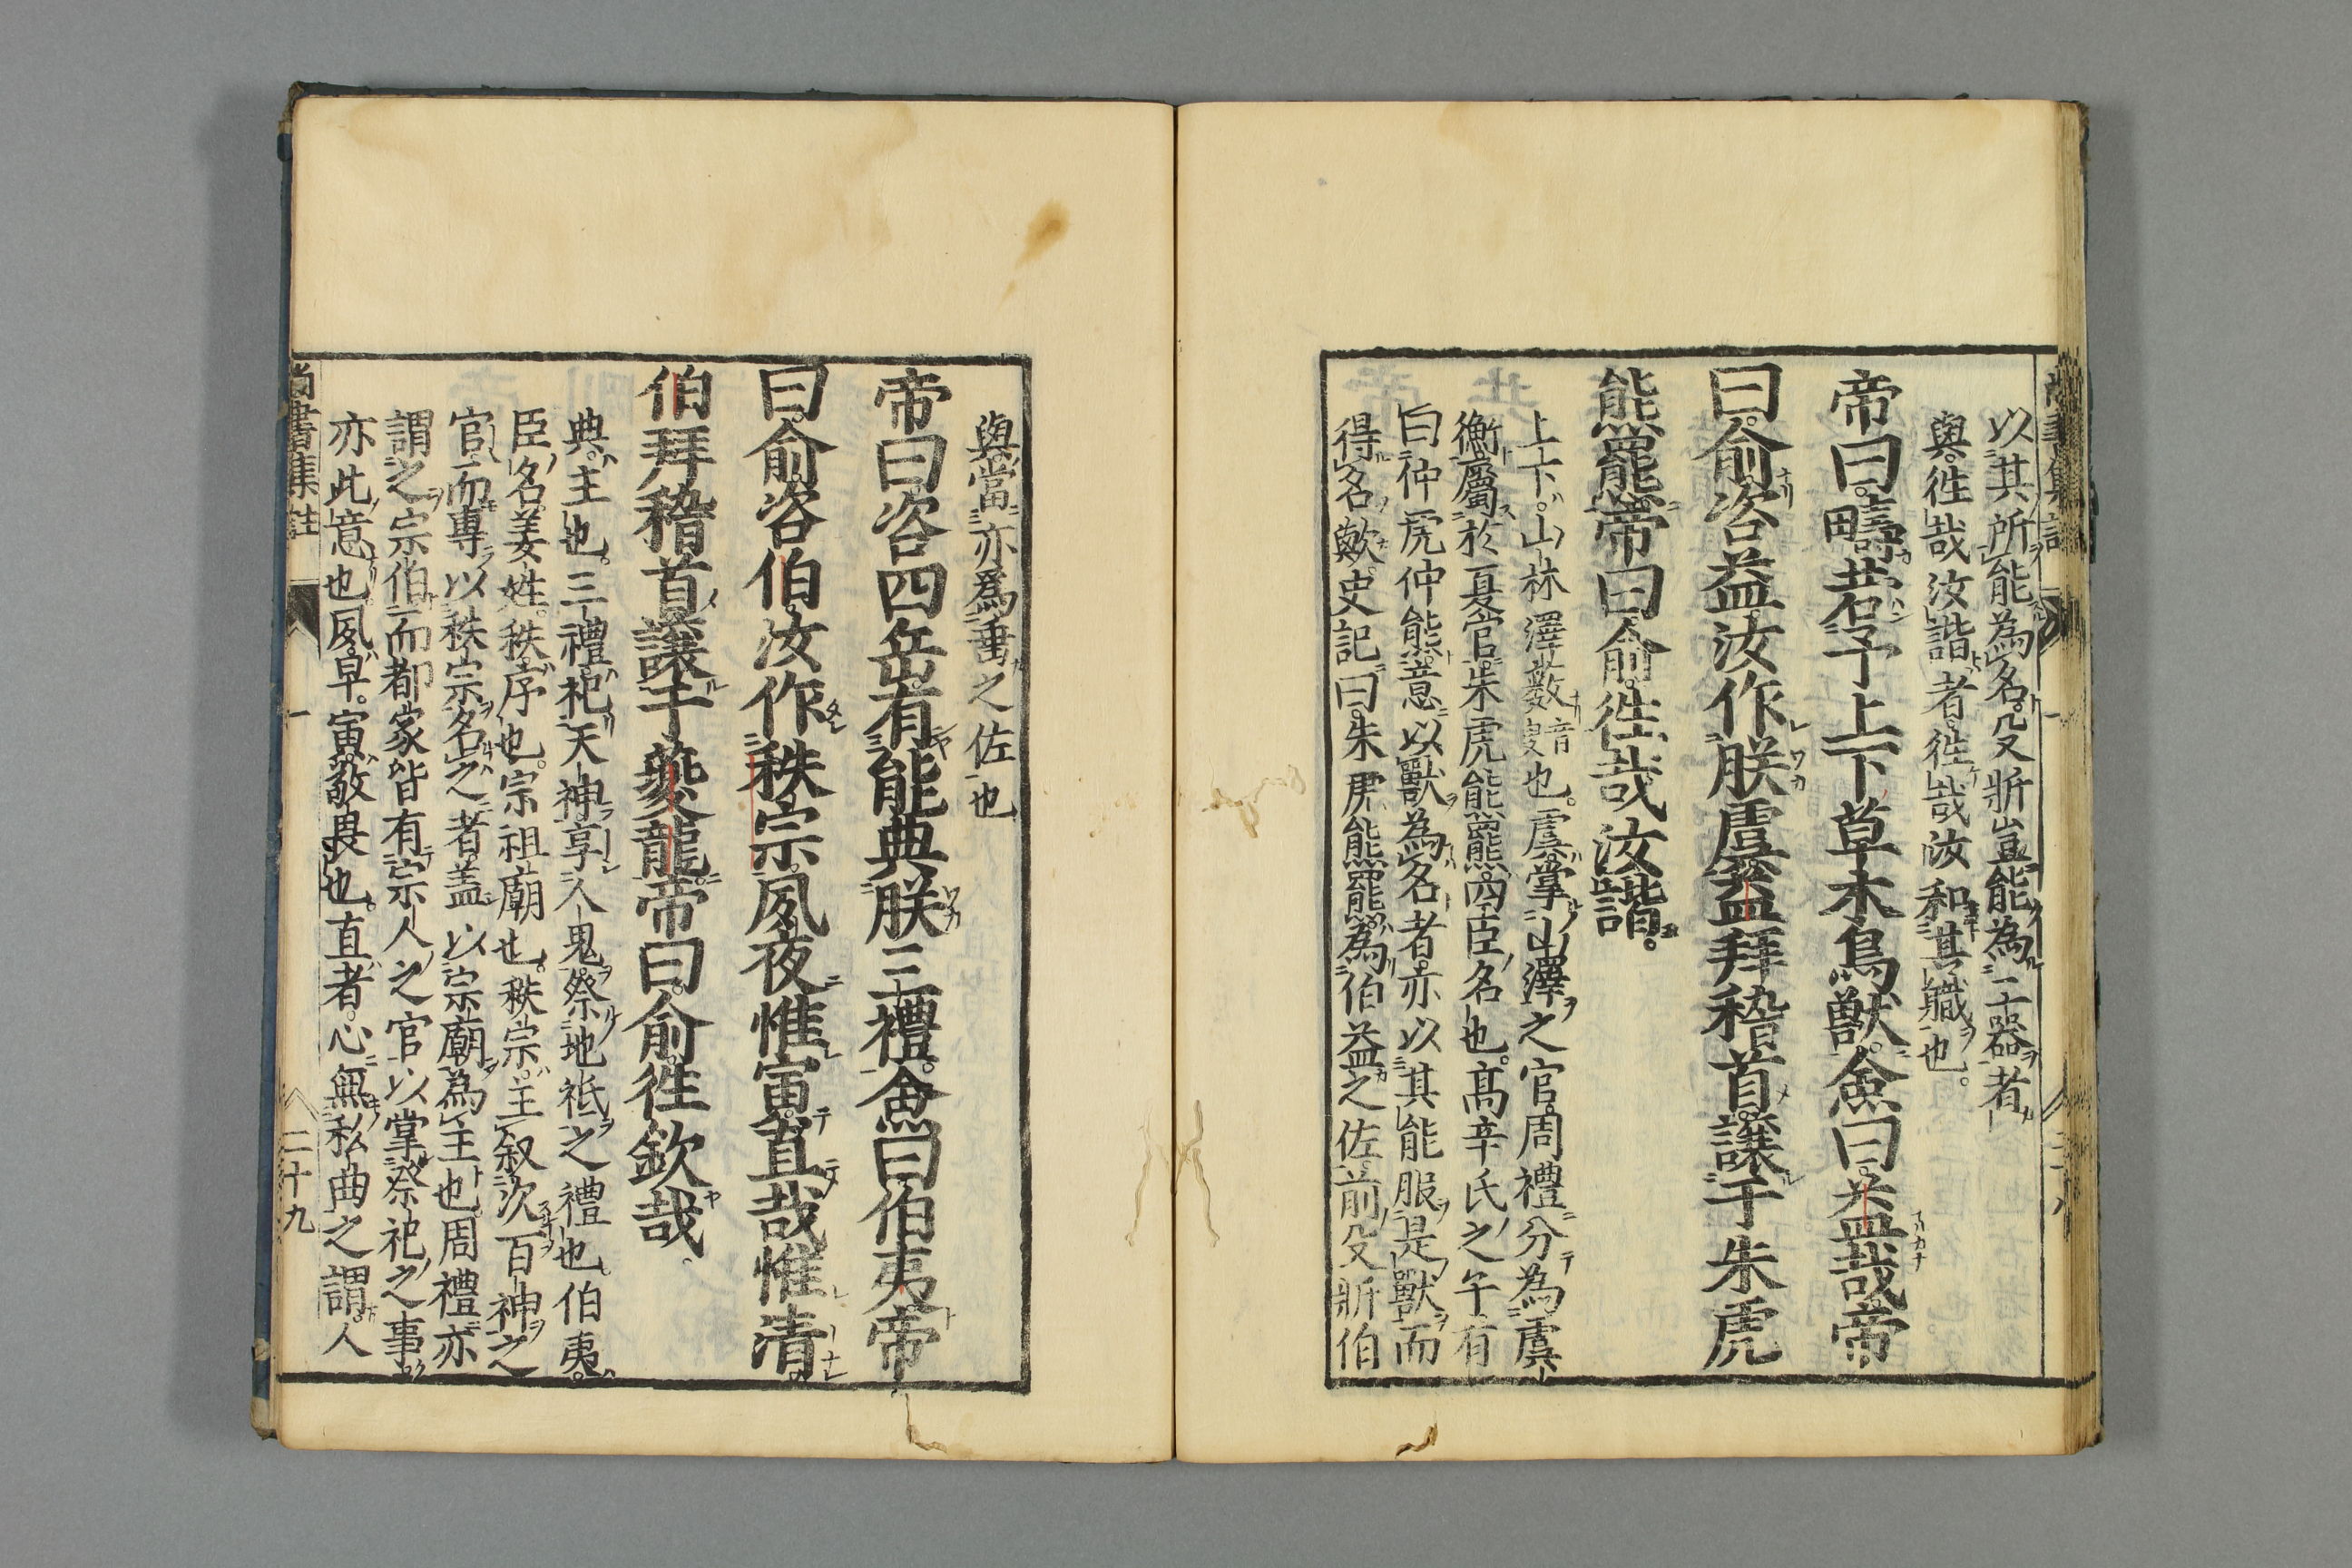 以其所能為名殳斨豈能為二器者
與徃哉汝諧者徃哉汝和其職也
帝曰疇若予上下草木鳥獸僉曰益哉帝
曰俞咨益汝作朕虞益拜稽首讓于朱虎
熊羆帝曰俞徃哉汝諧
上下山林澤藪也虞掌山澤之官周禮分為虞
衡屬於夏官朱虎熊羆四臣名也高辛氏之子有
曰仲虎仲熊意以獸為名者亦以其能服是獸而
得名歟史記曰朱虎熊羆為伯益之佐前殳斨伯
與當亦為垂之佐也
帝曰咨四岳有能典朕三禮僉曰伯夷帝
曰俞咨伯汝作秩宗夙夜惟寅直哉惟清
伯拜稽首讓于夔龍帝曰俞徃欽哉
典主也三禮祀天神享人鬼祭地祇之禮也伯夷
臣名姜姓秩序也宗祖廟也秩宗主叙次百神之
官而專以秩宗名之者蓋以宗廟為主也周禮亦
謂之宗伯而都家皆有宗人之官以掌祭祀之事
亦此意也夙早寅敬畏也直者心無私曲之謂人
尚書集註 一 二十九